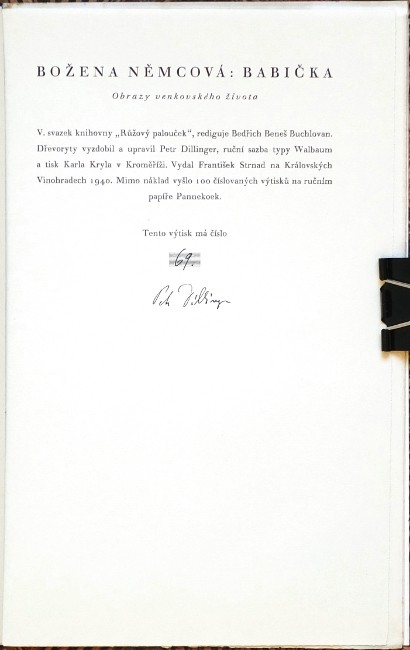 BOŽENA NĚMCOVÁ: BABIČKA
Obrazy venkovského života
V. svazek knihovny „Růžový palouček“, rediguje Bedřich Beneš Buchlovan.
Dřevoryty vyzdobil a upravil Petr Dillinger, ruční sazba typy Walbaum
a tisk Karla Kryla v Kroměříži. Vydal František Strnad na Královských
Vinohradech 1940. Mimo náklad vyšlo 100 číslovaných výtisků na ručním
papíře Pannekoek.
Tento výtisk má číslo
69.
Petr Dillinger